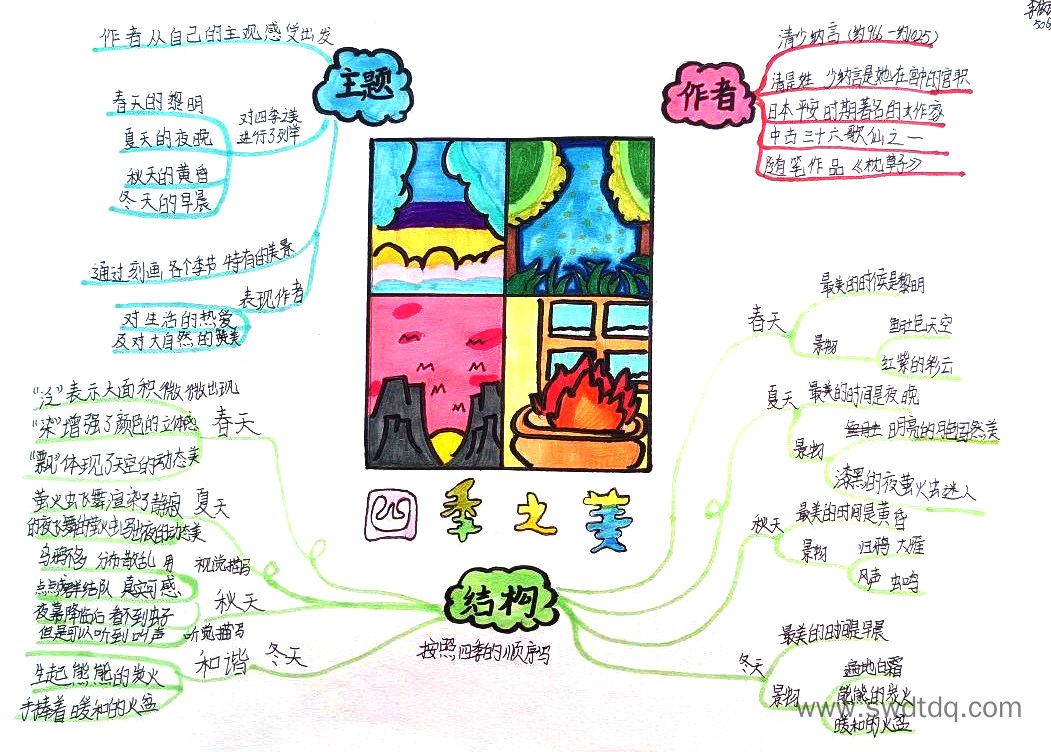 作者从自己的主观感受出发
主题
春天的黎明
夏天的夜晚
秋天的黄昏
冬天的早晨
对四季之美
进行了列举
通过刻画各个季节特有的美景
表现作者
对生活的热爱
及对大自然的赞美
作者
清少纳言(约966-约1025)
清是姓 少纳言是她在宫中的官职
日本平安时期著名的女作家
中古三十六歌仙之一
随笔作品《枕草子》
四季之美
结构
按照四季的顺序写
春天
最美的时候是黎明
景物
鱼肚色天空
红紫的彩云
夏天
最美的时间是夜晚
景物
明亮的月色固然美
漆黑的夜萤火虫迷人
秋天
最美的时间是黄昏
景物
归鸦 大雁
风声 虫鸣
冬天
最美的时
早晨
景物
遍地白霜
熊熊的炭火
暖和的火盆
春天
“泛”表示大面积微微出现
“染”增强了颜色的立体感
“飘”体现了天空的动态美
夏天
萤火虫飞舞渲染了静寂
的夜飞舞的萤火虫写出夜的动态美
秋天
视觉描写
乌鸦不多 分布散乱 用
点点 大雁群结队 真实可感
听觉描写
夜幕降临后 看不到虫子
但是可以听到叫声
冬天
和谐
生起熊熊的炭火
手捧着暖和的火盆
www.swdtdq.com